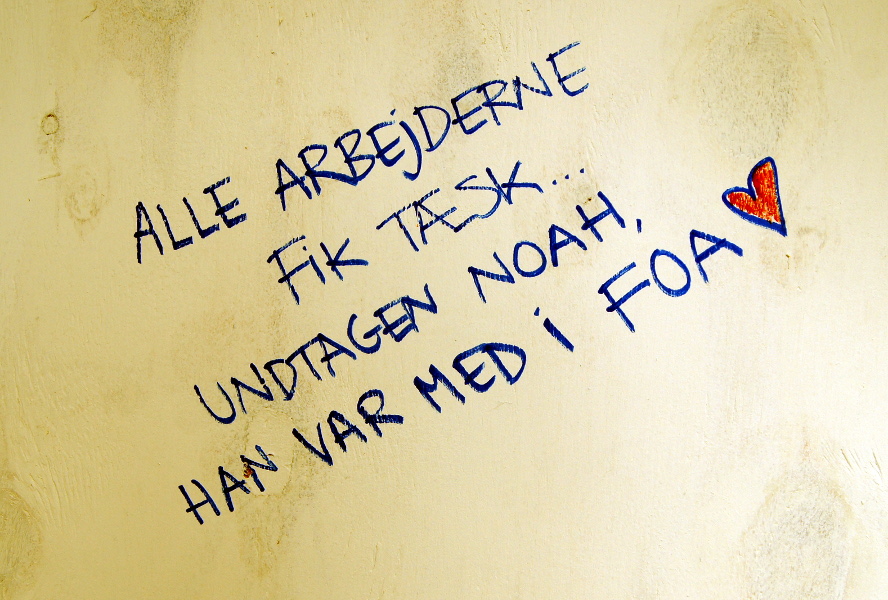 ALLE ARBEJDERNE
FIK TÆSK...
UNDTAGEN NOAH,
HAN VAR MED I FOA